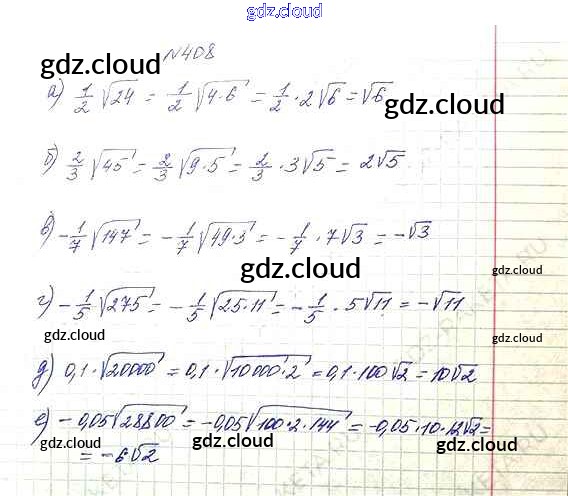 gdz.cloud
N408
gdz.cloud
а) 1/2 √24 = 1/2 √4·6 = 1/2 · 2√6 = √6
gdz.cloud
б) 2/3 √45 = 2/3 √9·5 = 2/3 · 3√5 = 2√5
в) -1/7 √147 = -1/7 √49·3 = -1/7 · 7√3 = -√3
gdz.cloud
gdz.cloud
г) -1/5 √275 = -1/5 √25·11 = -1/5 · 5√11 = -√11
gdz.cloud
gdz.cloud
д) 0,1·√20000 = 0,1·√10000·2 = 0,1·100√2 = 10√2
е) -0,05√28800 = -0,05√100·2·144 = -0,05·10·12√2 =
= -6√2
gdz.cloud
gdz.cloud
gdz.cloud